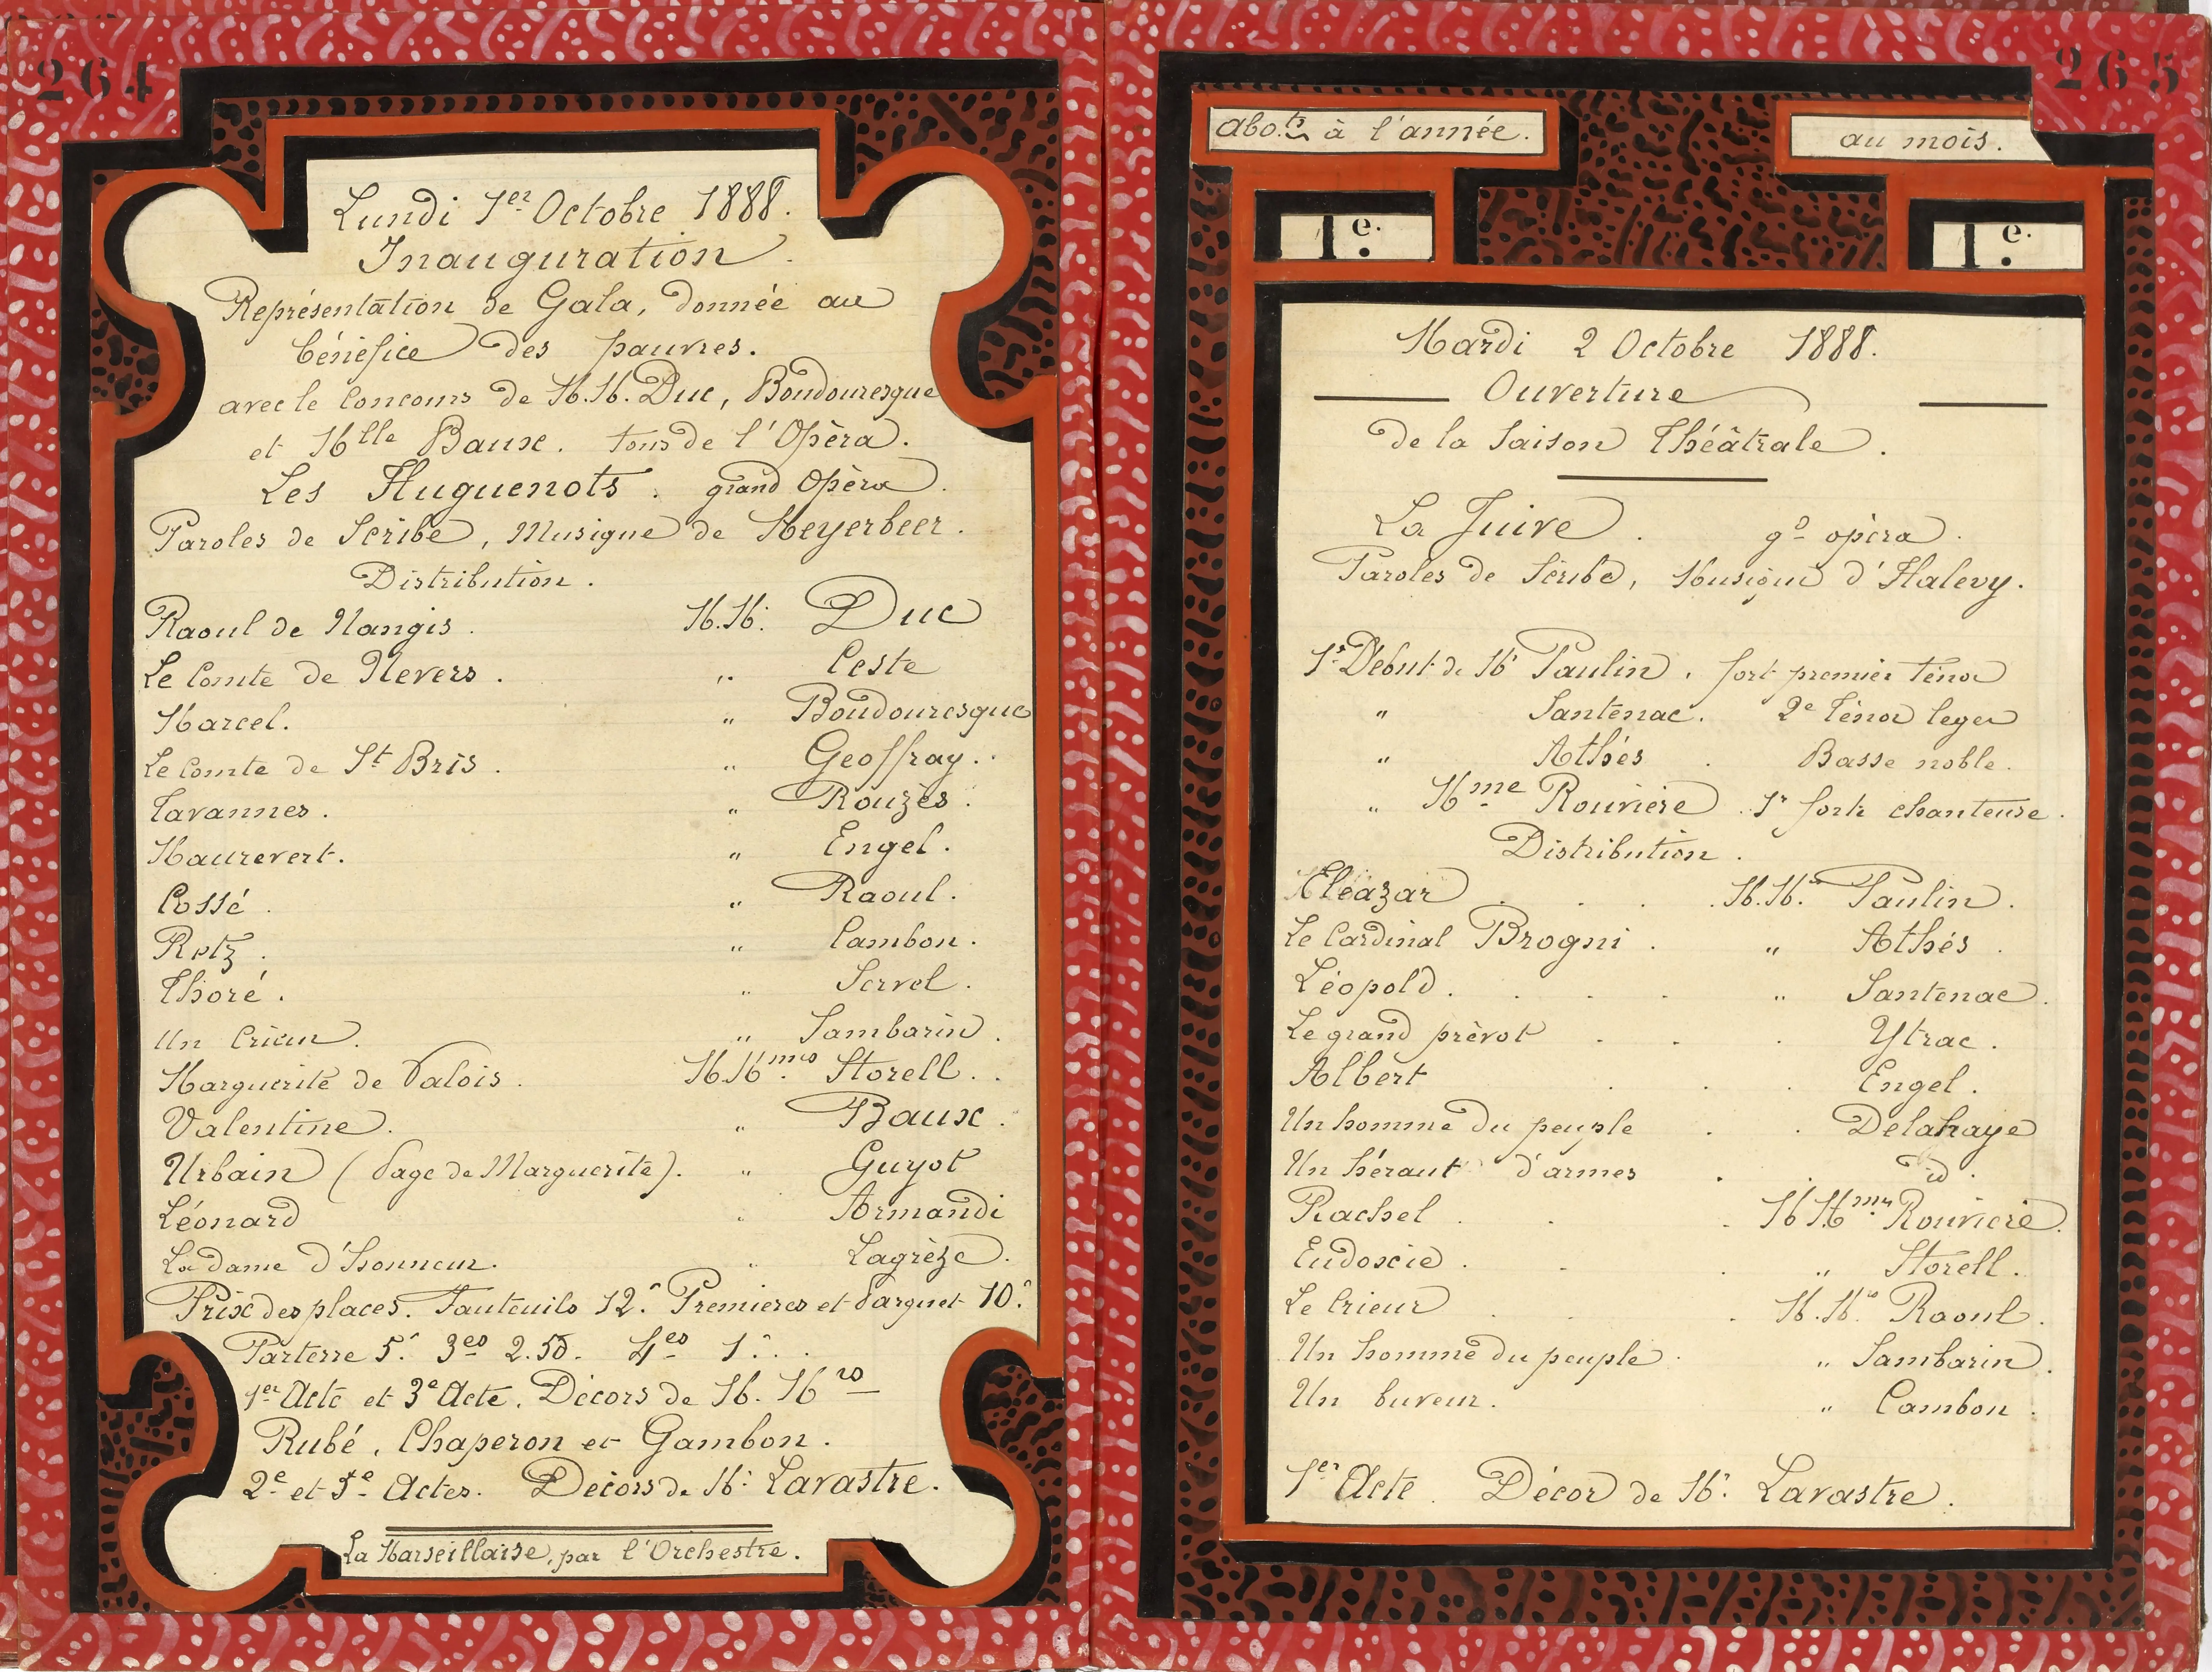 264
Lundi 1er Octobre 1888.
Inauguration.
Représentation de Gala, donnée au
bénéfice des pauvres.
avec le concours de M.M. Duc, Boudouresque
et Mlle Baux. tous de l'Opèra.
Les Huguenots. grand Opèra.
Paroles de Scribe, Musique de Meyerbeer.
Distribution.
Raoul de Nangis. M.M. Duc
Le Comte de Nevers. " Ceste
Marcel. " Boudouresque
Le Comte de St Bris. " Geoffray.
Tavannes. " Rouzès.
Maurevert. " Engel.
Cossé. " Raoul.
Retz. " Cambon.
Thoré. " Servel.
Un Crieur. " Sambarin.
Marguerite de Valois. M.Mmes Storell.
Valentine. " Baux.
Urbain (Page de Marguerite). " Guyot
Léonard " Armandi
La dame d'honneur. " Lagrèze.
Prix des places. Fauteuils 12f. Premieres et Parquet 10f.
Parterre 5f. 3es 2.50. 4es 1f.
1er Acte et 3e Acte. Décors de M.Mrs
Rubé, Chaperon et Gambon.
2e et 5e Actes. Décors de M. Lavastre.
La Marseillaise, par l'Orchestre.
265
abo.ts à l'année. au mois.
1e. 1e.
Mardi 2 Octobre 1888.
Ouverture
de la Saison Théâtrale.
La Juive. gd opèra.
Paroles de Scribe, Musique d'Halevy.
1r Début de Mr Paulin. fort premier ténor
" Santenac. 2e Ténor leger
" Athès. Basse noble.
" Mme Rouviere. 1r forte chanteuse.
Distribution.
Eléazar. M.M.rs Paulin.
Le Cardinal Brogni. " Athès.
Léopold. " Santenac.
Le grand prèvot. Ytrac.
Albert. Engel.
Un homme du peuple. Delahaye
Un héraut d'armes. id.
Rachel. M.Mmes Rouviere.
Eudoxie. " Storell.
Le Crieur. M.Mrs Raoul.
Un homme du peuple. " Sambarin.
Un buveur. " Cambon.
1er Acte. Décor de M. Lavastre.